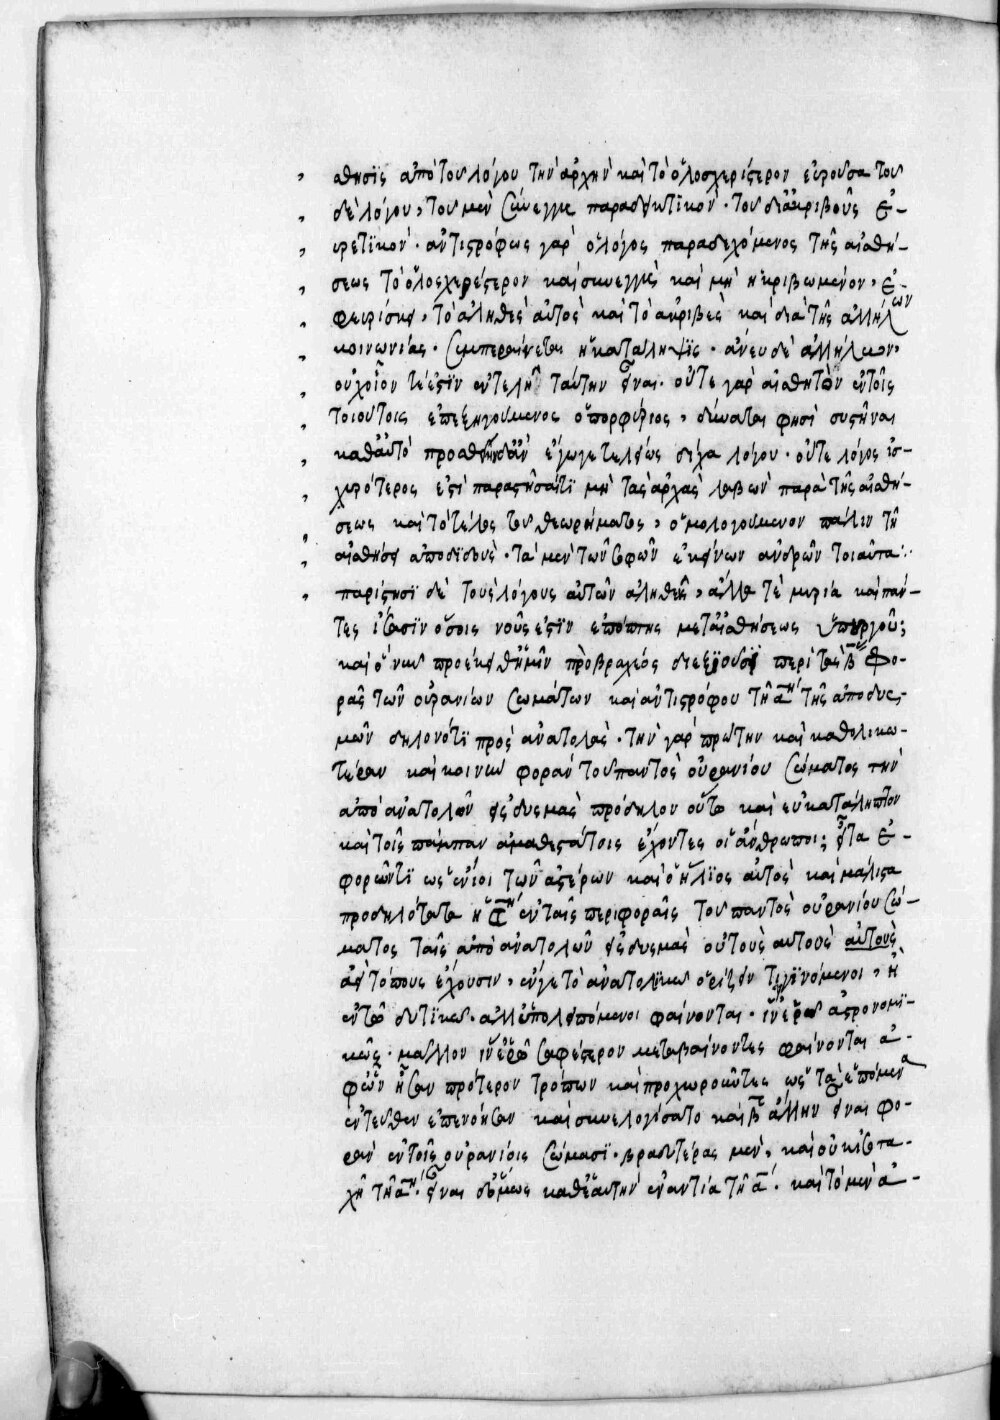 αθησϊς ἀπὸ τοῦ λόγου τὴν ἀρχὴν καὶ τὸ ὁλοσχερέστερον εὑροῦσα τοῦ
δὲ λόγου, τοῦ μὲν σύνεγγυς παραδεκτικὸν · τοῦ δὲ ἀκριβοῦς εὑ-
ρετϊκὸν · ἀντιστρόφως γὰρ ὁ λόγος παραδεχόμενος τῆς αἰσθή-
σεως τὸ ὁλοσχερέστερον καὶ σύνεγγυς καὶ μὴ ἠκριβωμένον,
τὸ ἀληθὲς αὐτὸς καὶ τὸ ἀκριβὲς καὶ διὰ τῆς ἀλλήλων
κοινωνίας · συμπεραίνεται ἡ κατάληψϊς · ἄνευ δὲ ἀλλήλων
οὐχ οἷον τέ ἐστϊν ἐντελῆ ταύτην εἶναι · οὔτε γὰρ αἰσθητὸν ἐν τοῖς
τοιούτοις ἐπεξηγούμενος ὁ πορφύριος, δύναται φησὶ συστῆναι
καθ' αὑτὸ τελείως δίχα λόγου · οὔτε λόγος ἰσ-
χυρότερος ἐστὶ παραστῆσαί τϊ μὴ τὰς ἀρχὰς λαβὼν παρὰ τῆς αἰσθή-
σεως καὶ τὸ τέλος τοῦ θεωρήματος, ὁμολογούμενον πάλιν τῆ
αἰσθήσει ἀποδϊδοὺς · τὰ μὲν τῶν σοφῶν ἐκείνων ἀνδρῶν τοιαῦτα :·
παρίστησϊ δὲ τοὺς λόγους αὐτῶν ἀληθεῖς, ἄλλα τὲ μυρία καὶ πάν-
τες ἴσασϊν ὅσοις νοῦς ἐστϊν ἐπόπτης μετ' αἰσθήσεως ὑπουργοῦ;
καὶ ὃ νῦν προέκειθ' ἡμῖν πρὸ βραχέος διεξϊοῦσϊ περὶ τῆς β̅ φο-
ρᾶς τῶν οὐρανίων σωμάτων καὶ ἀντιστρόφου τῆ α̅η τῆς ἀπὸ δυσ-
μῶν δηλονότϊ πρὸς ἀνατολὰς · τὴν γὰρ πρώτην καὶ καθολικω-
τέραν καὶ κοινὴν φορὰν τοῦ παντὸς οὐρανίου σώματος τὴν
ἀπὸ ἀνατολῶν εἰς δυσμὰς πρόδηλον οὕτω καὶ εὐκατάληπτον
καὶ τοῖς πάμπαν ἀμαθεστάτοις ἔχοντες οἱ ἄνθρωποι; εἶτα ἐ-
φορῶντϊ ὡς ἔνιοι τῶν ἀστέρων καὶ ὁ ἥλϊος αὐτὸς καὶ μάλιστα
προδηλότατα ἡ ἐν ταῖς περιφοραῖς τοῦ παντὸς οὐρανίου σώ-
ματος ταῖς ἀπὸ ἀνατολῶν εἰς δυσμὰς οὐ τοὺς αὐτοὺς αὐτοὺς
ἀεὶ τόπους ἔχουσιν, ἐν γε τῶ ἀνατολϊκῶ ὁρίζοντι γϊνόμενοι, ἢ
ἐν τῶ δυτϊκῶ · ἀλλ' ὑπολειπόμενοι φαίνονται · ἵν' εἴπω ἀστρονομϊ-
κῶς · μᾶλλον ἵν' εἴπω σαφέστερον μεταβαίνοντες φαίνονται ἀ-
φ' ὧν ἦσαν πρότερον τρόπων καὶ προχωροῦντες ὡς τὰ ἑπόμενα
ἐντεῦθεν ἐπενόησαν καὶ συνελογίσαντο καὶ β̅ ἄλλην εἶναι φο-
ρὰν ἐν τοῖς οὐρανίοις σώμασϊ · βραδυτέρας μὲν, καὶ οὐκ ἰσοτα-
χῆ τῆ α̅η · εἶναι δ' ὅμως καθ' ἑαυτὴν ἐναντία τῆ α̅ · καὶ τὸ μὲν ἀ-